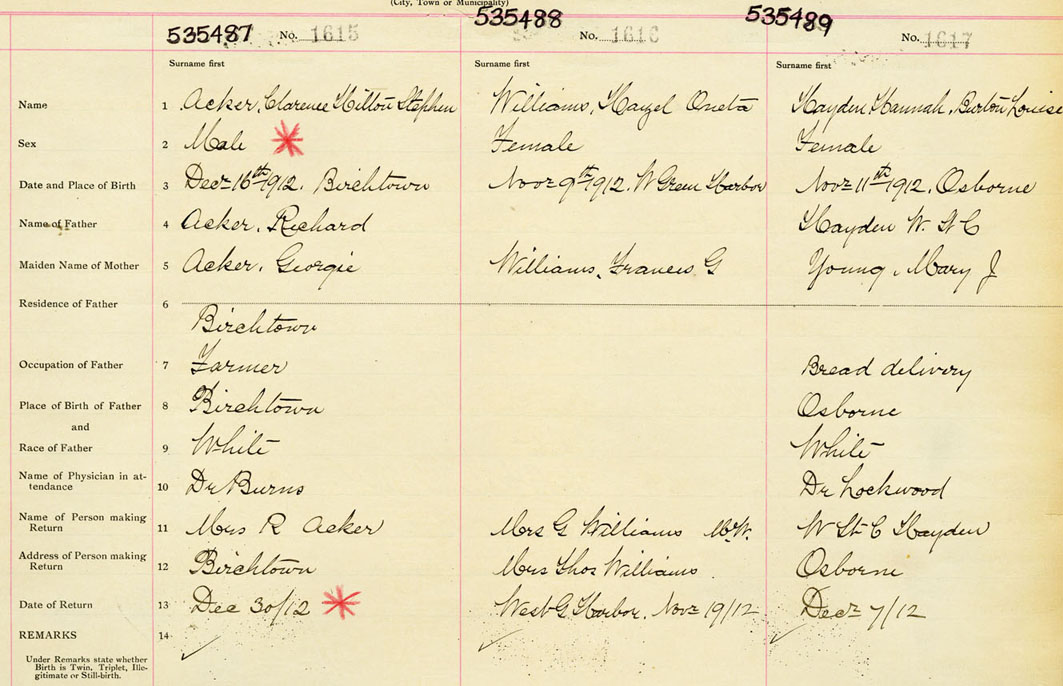 (City, Town or Municipality)
535487 No. 1615 535488 No. 1616 535489 No. 1617
Surname first Surname first Surname first
Name 1 Acker, Clarence Hilton Stephen Williams, Hazel Oneta Hayden Hannah, Burton Louise
Sex 2 Male Female Female
Date and Place of Birth 3 Decr 16th 1912. Birchtown Novr 9th 1912. W Green Harbor Novr 11th 1912, Osborne
Name of Father 4 Acker, Richard Hayden W. St C
Maiden Name of Mother 5 Acker, Georgie Williams, Frances G Young, Mary J
Residence of Father 6
Birchtown
Occupation of Father 7 Farmer Bread delivery
Place of Birth of Father 8 Birchtown Osborne
and
Race of Father 9 White White
Name of Physician in at-
tendance 10 Dr Burns Dr Lockwood
Name of Person making
Return 11 Mrs R Acker Mrs G Williams M.W. W St C Hayden
Address of Person making
Return 12 Birchtown Mrs Thos Williams Osborne
Date of Return 13 Dec 30/12 West G Harbor, Novr 19/12 Decr 7/12
REMARKS 14
Under Remarks state whether
Birth is Twin, Triplet, Ille-
gitimate or Still-birth.